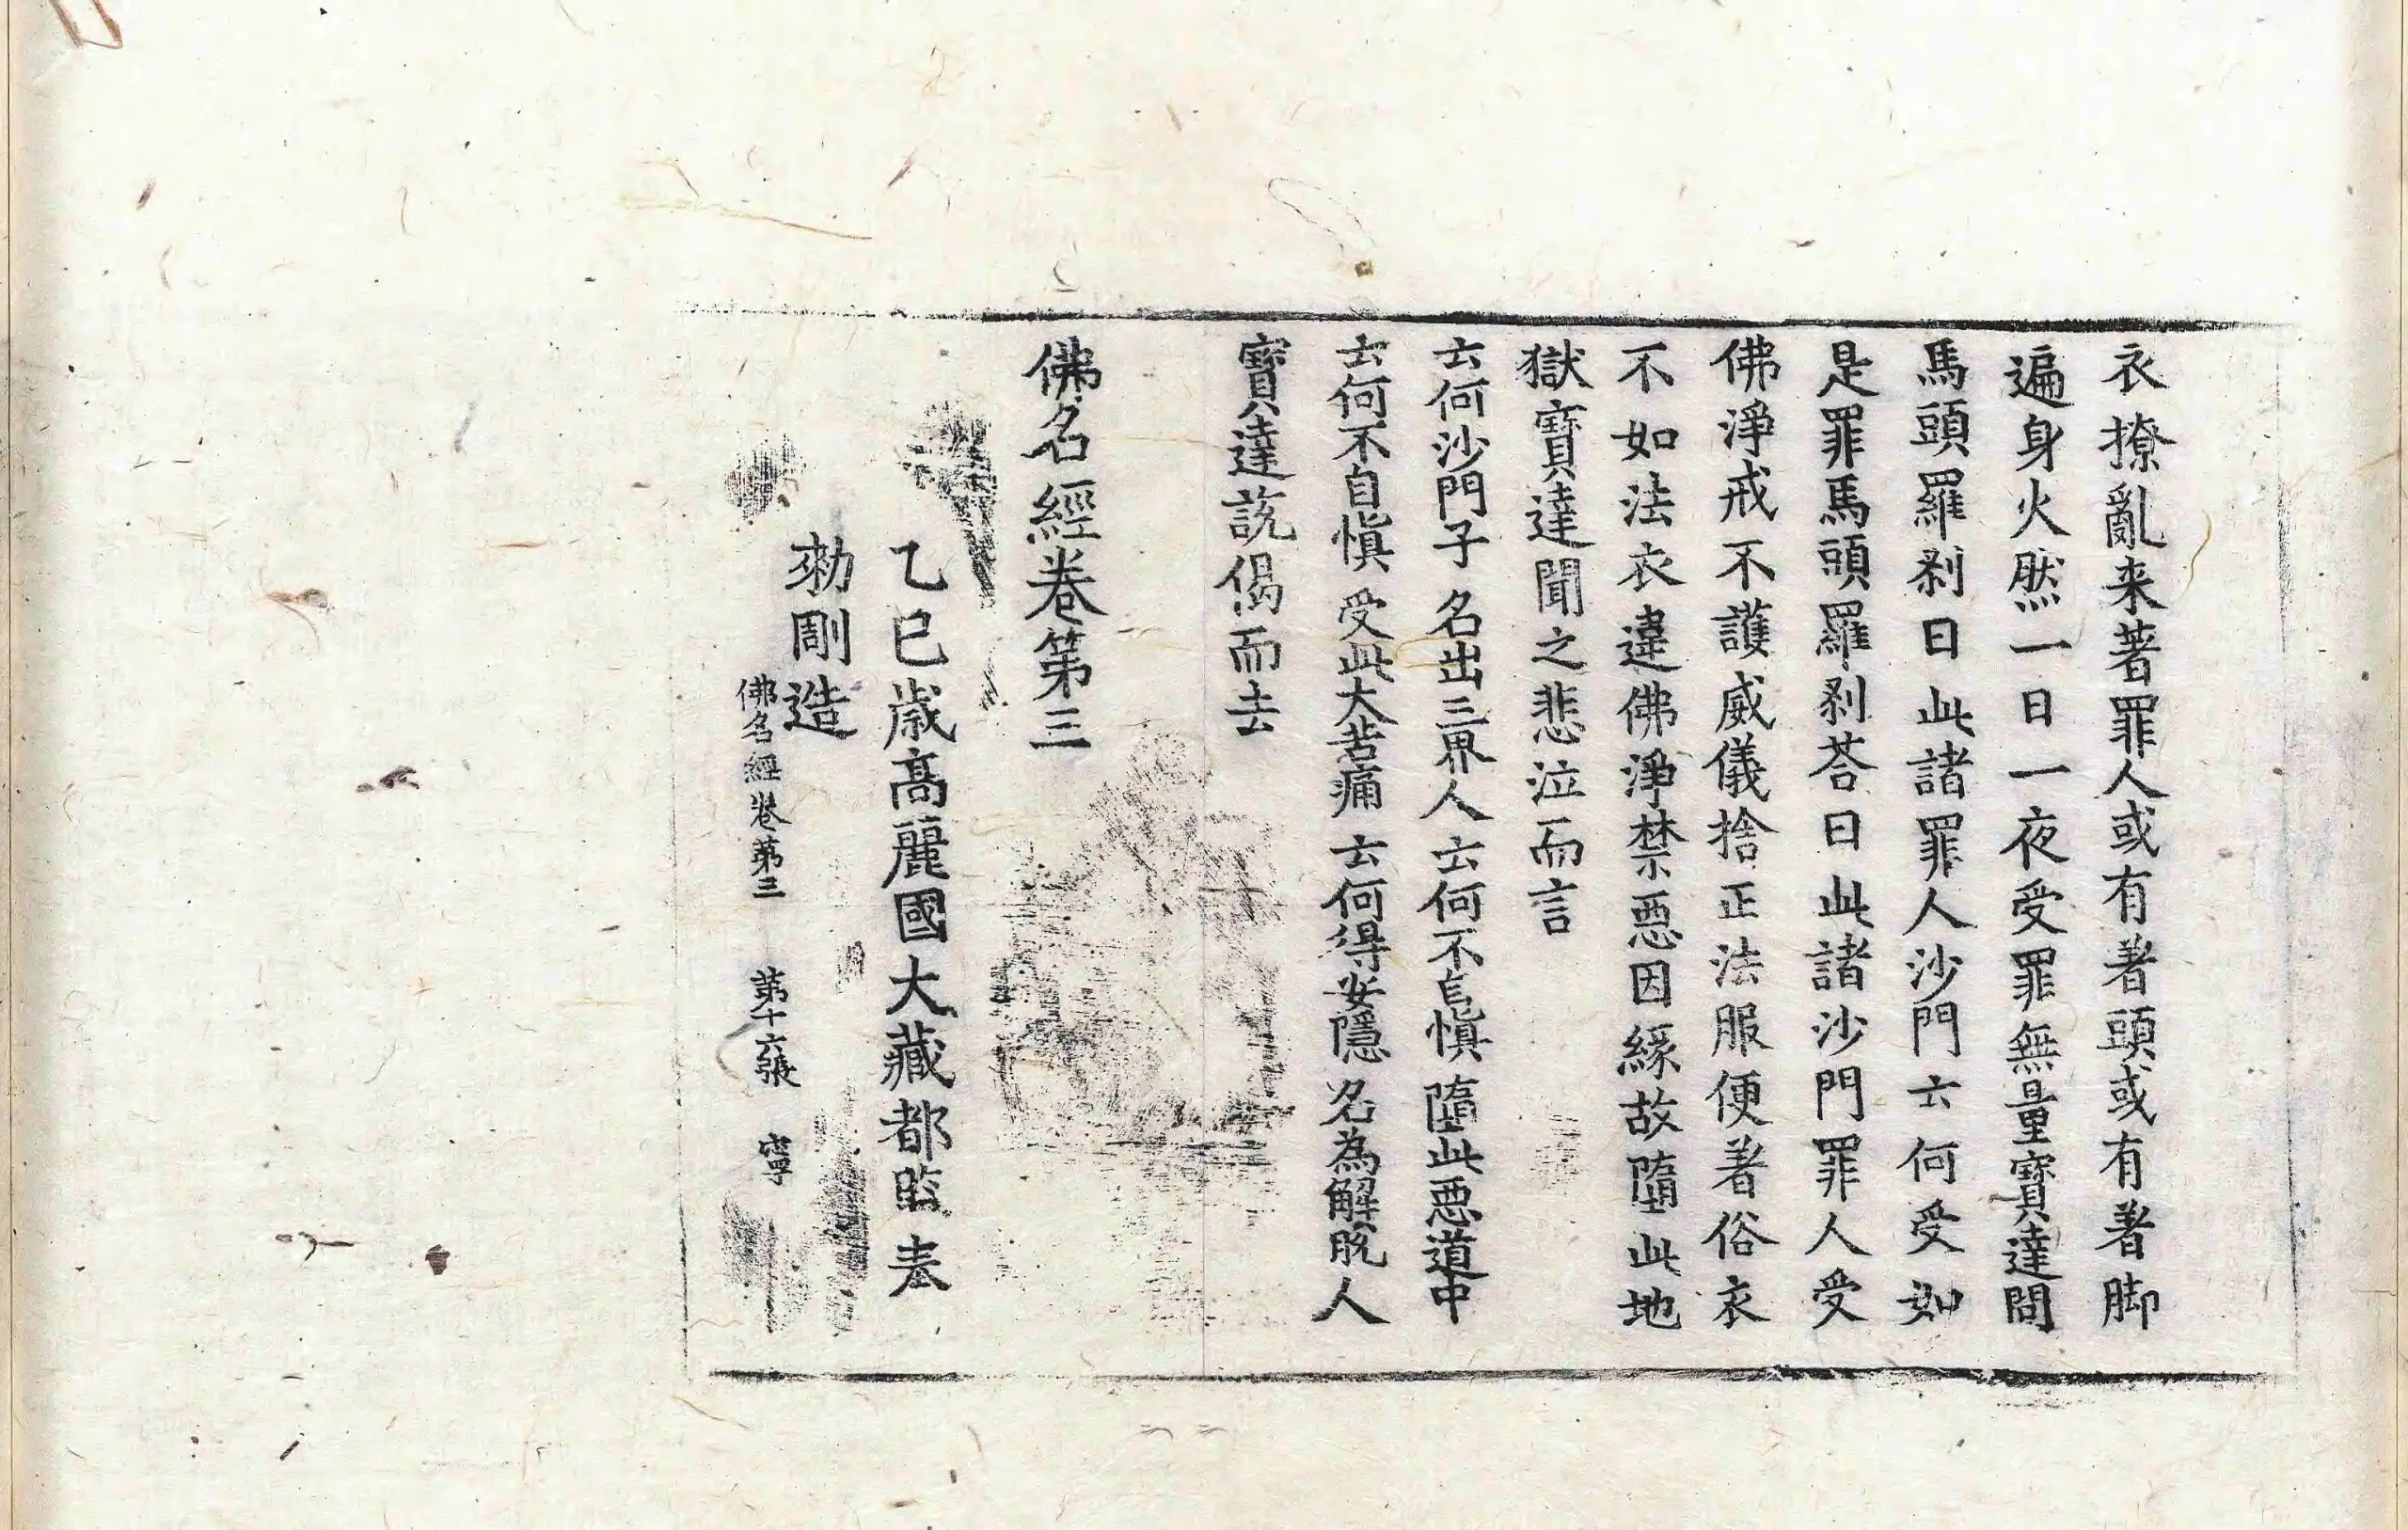 衣撩亂来著罪人或有著頭或有著脚
遍身火然一日一夜受罪無量寶達問
馬頭羅剎曰此諸罪人沙門云何受如
是罪馬頭羅剎荅曰此諸沙門罪人受
佛淨戒不護威儀捨正法服便著俗衣
不如法衣違佛淨禁惡因緣故墮此地
獄寶達聞之悲泣而言
云何沙門子 名出三界人 云何不自慎 墮此惡道中
云何不自慎 受此大苦痛 云何得安隱 名為解脫人
寶達說偈而去
佛名經卷第三
乙巳歲高麗國大藏都監奉
勑彫造
佛名經卷第三 第十六張 寧